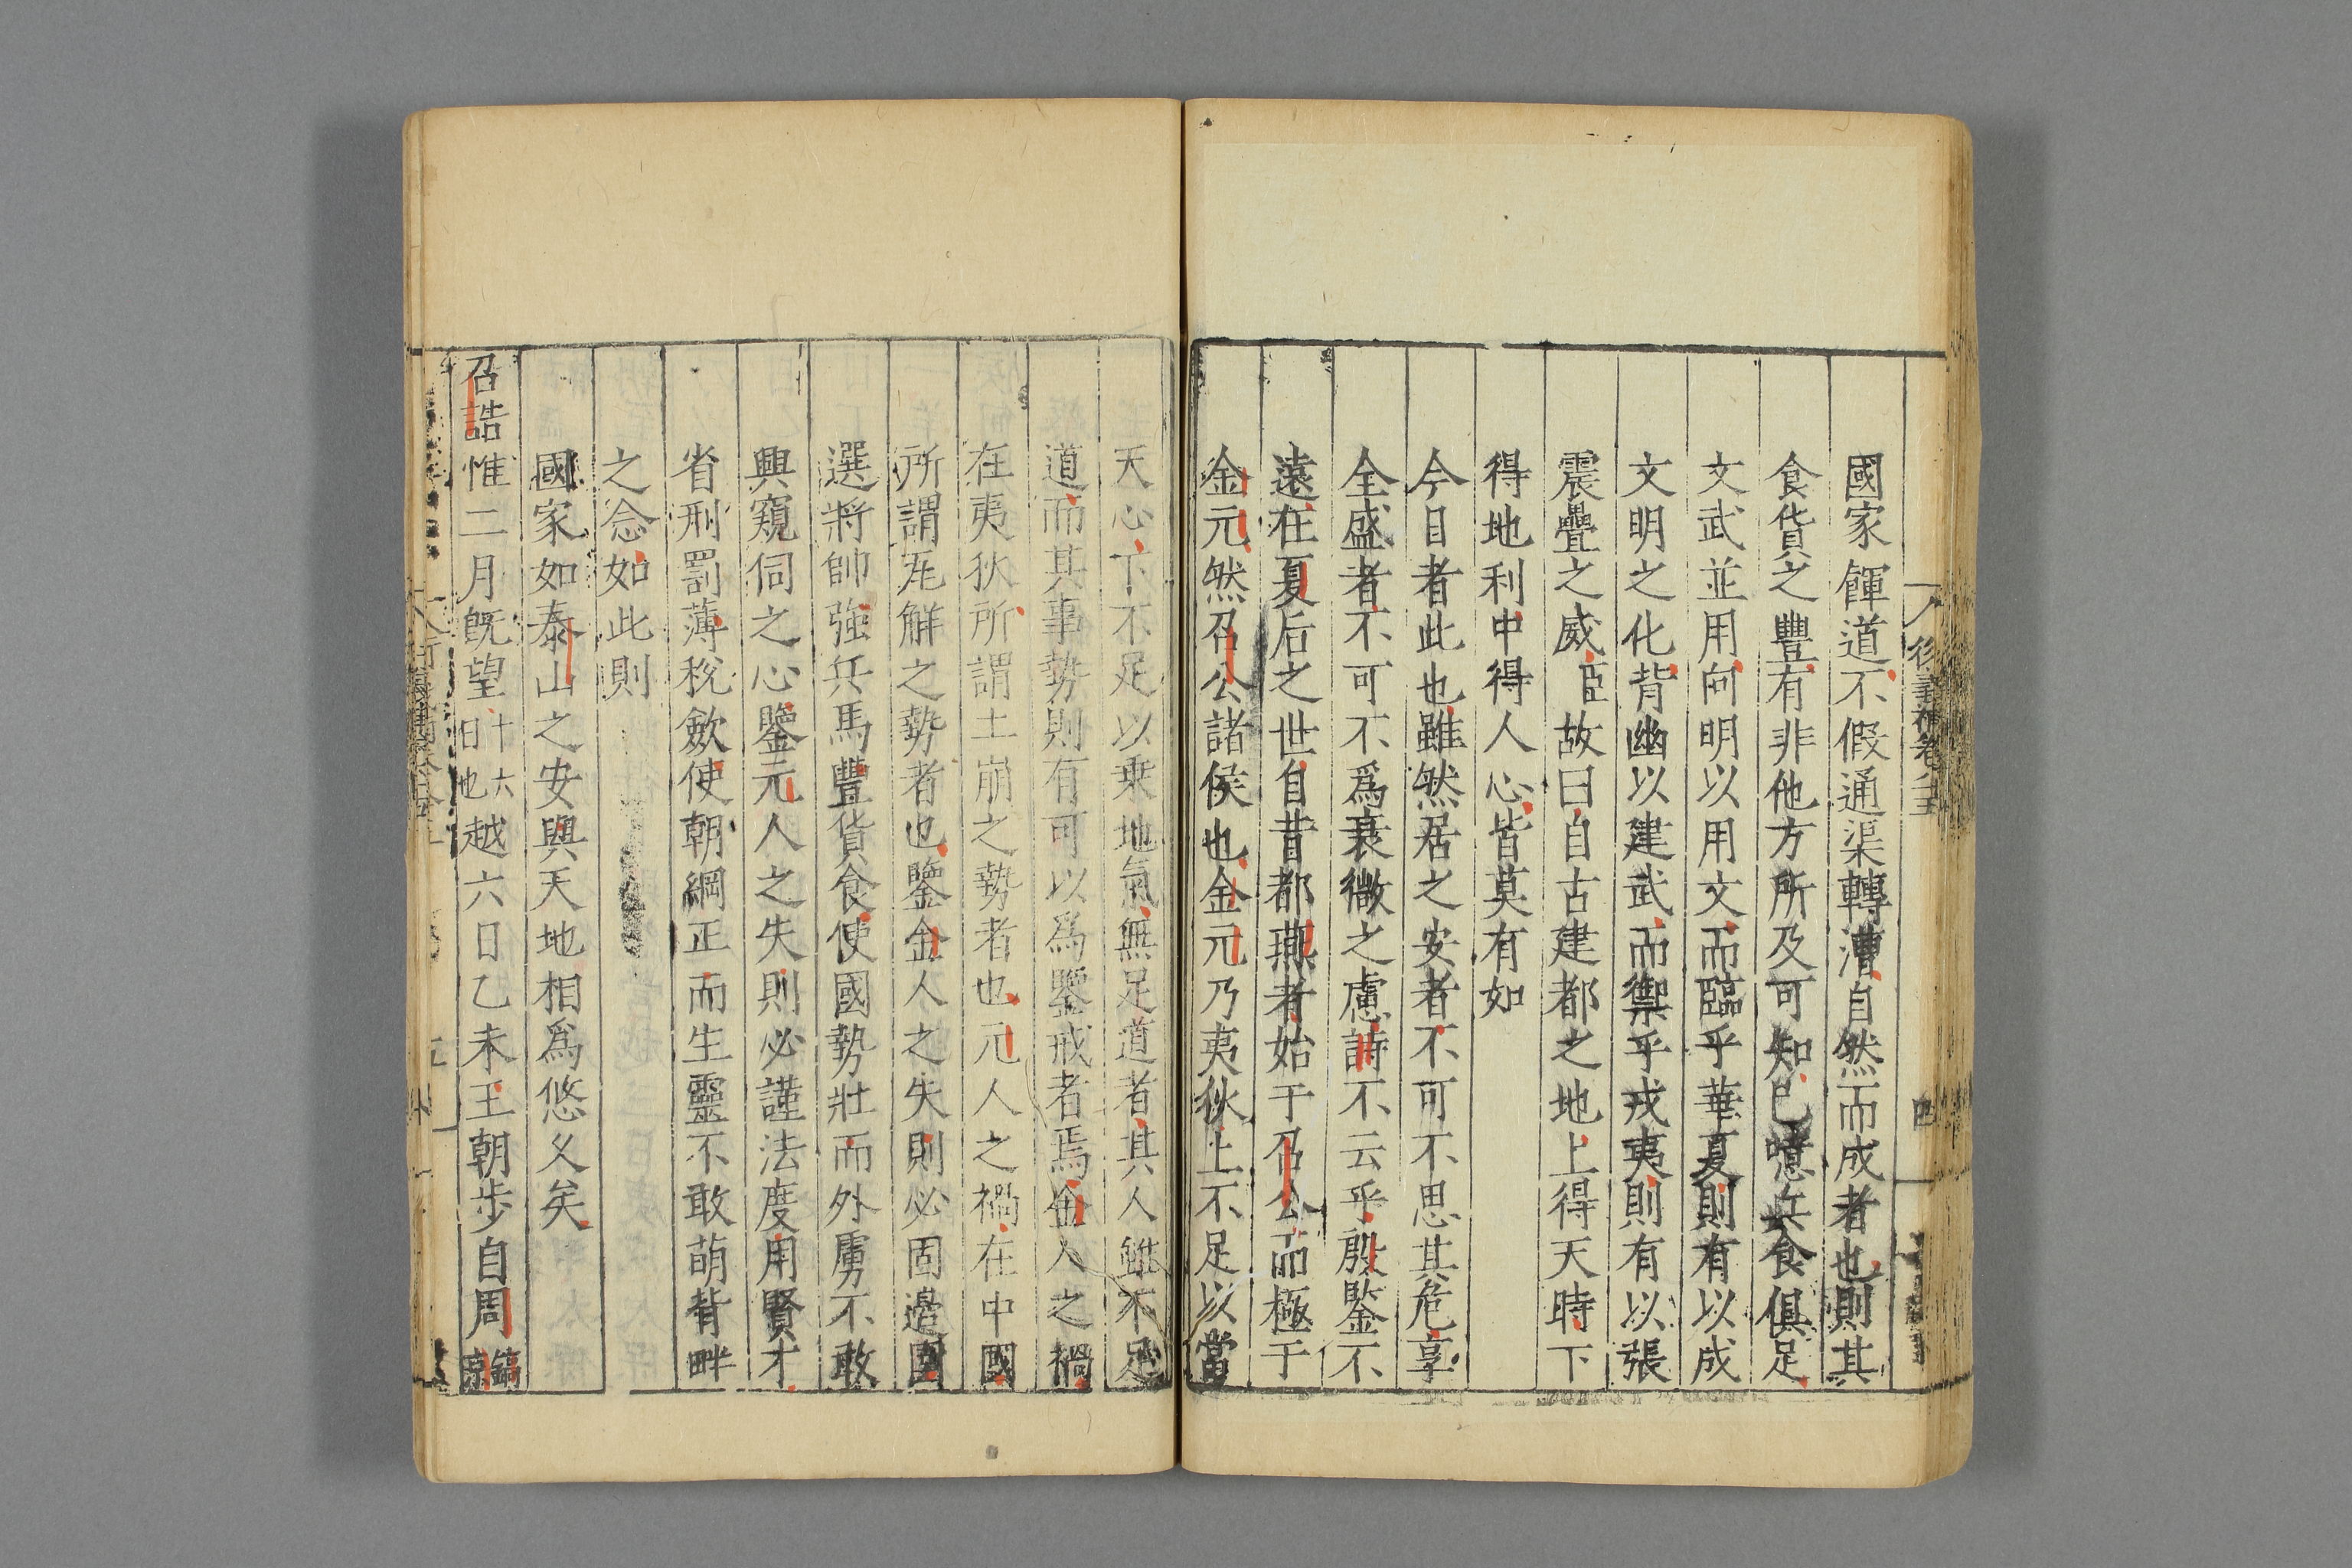 國家餫道不假通渠轉漕自然而成者也則其
食貨之豐有非他方所及可知已噫兵食俱足
文武並用向明以用文而臨乎華夏則有以成
文明之化背幽以建武而禦乎戎夷則有以張
震疊之威臣故曰自古建都之地上得天時下
得地利中得人心皆莫有如
今日者此也雖然居之安者不可不思其危享
全盛者不可不爲衰微之慮詩不云乎殷鑒不
遠在夏后之世自昔都燕者始于召公而極于
金元然召公諸侯也金元乃夷狄上不足以當
天心下不足以乘地氣無足道者其人雖不足
道而其事勢則有可以爲鑒戒者焉金人之禍
在夷狄所謂土崩之勢者也元人之禍在中國
所謂瓦解之勢者也鑒金人之失則必固邊圉
選將帥強兵馬豐貨食使國勢壯而外虜不敢
興窺伺之心鑒元人之失則必謹法度用賢才
省刑罰薄稅斂使朝綱正而生靈不敢萌背畔
之念如此則
國家如泰山之安與天地相爲悠久矣
召誥惟二月旣望十六日也越六日乙未王朝步自周鎬京